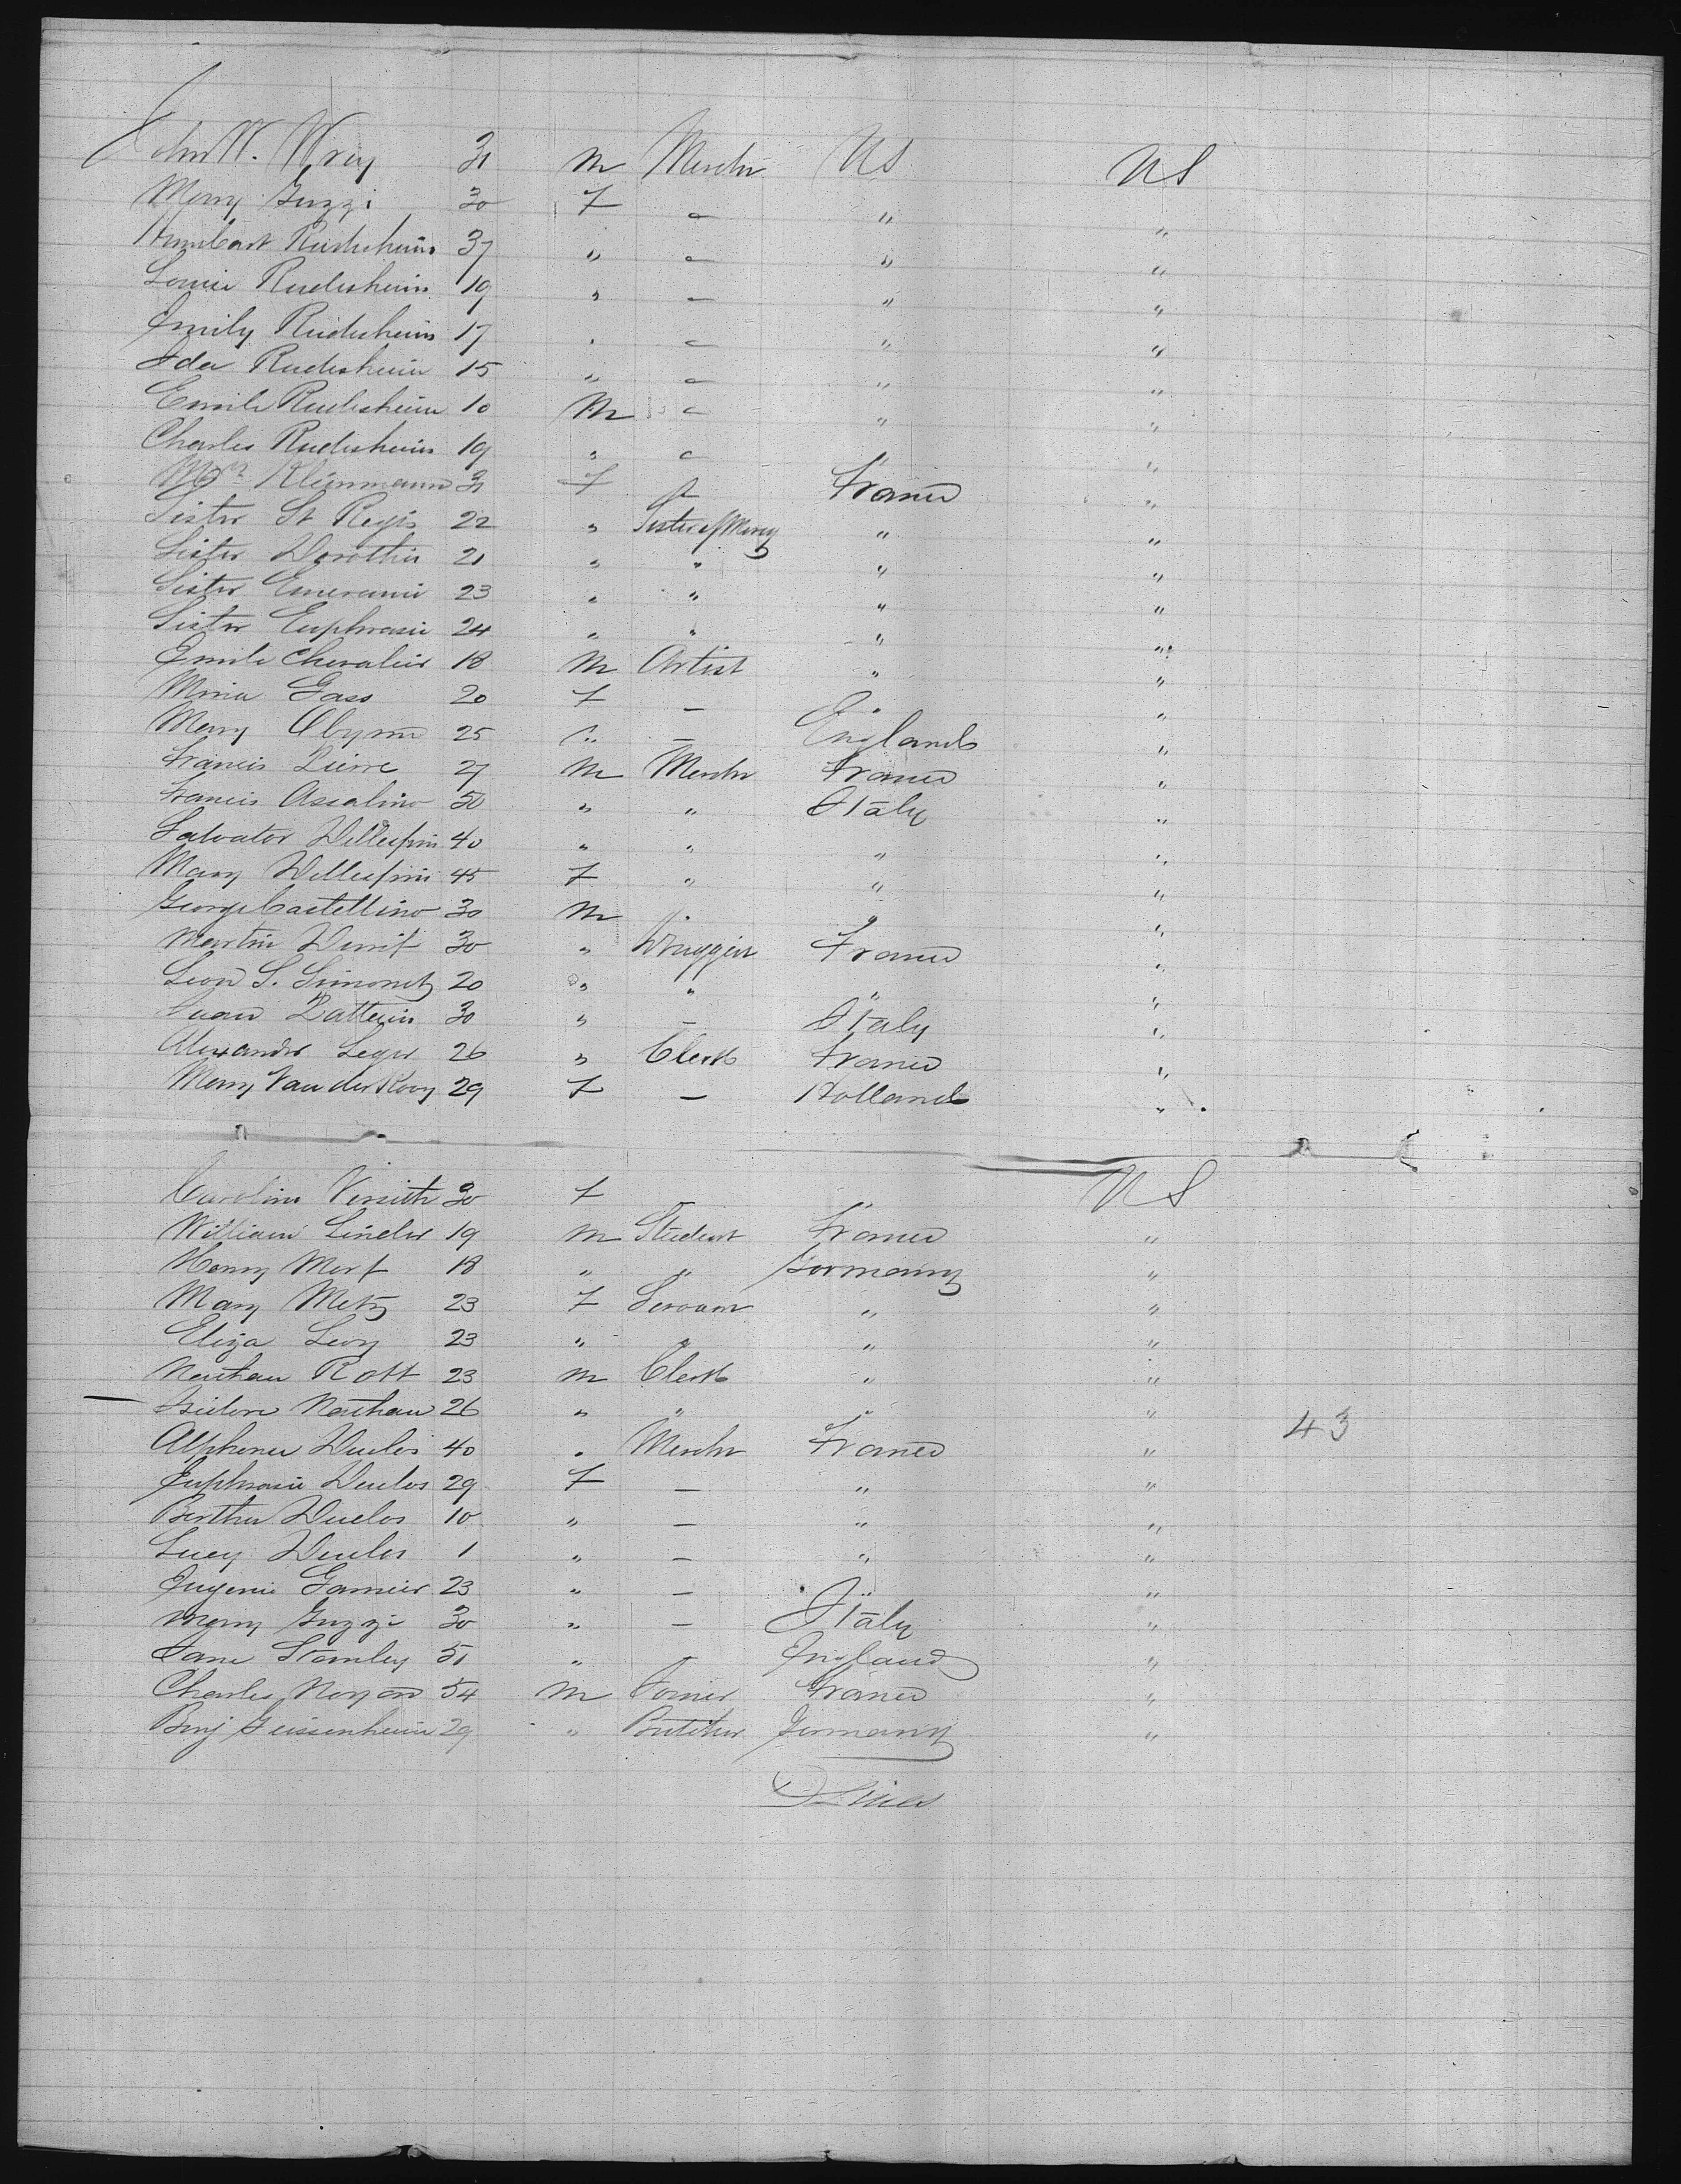 John W. Wrey 31 M Merchr US US
Mary Guzzi 30 F " "
Rudesheim 37 " " "
Louise Rudesheim 19 " — " "
Emily Rudesheim 17 " " "
Ida Rudesheim 15 " " "
Emile Rudesheim 10 M " "
Charles Rudesheim 19 " " "
Mrs Kleinmann 31 F France "
Sister St Regis 22 " Sister of Mercy " "
Sister Dorothee 21 " " " "
Sister 23 " " " "
Sister Euphrasie 24 " " " "
Emile Chevalier 18 M Artist " "
Gass 20 F — " "
Mary 25 " — England "
Francis Pierre 27 M Merchr France "
Francis Ascalino 50 " " Italy "
Salvator 40 " " " "
Mary 45 F " " "
George Castellino 30 M " " "
Martin 30 " Druggist France "
Leon S. Simonet 20 " " " "
30 " — Italy "
Alexander Leger 26 " Clerk France "
Mary Van der Kooy 29 F — Holland "
Caroline 30 F " US
William Linder 19 M Student France "
Henry Merf 18 " " Germany "
Mary Metz 23 F Servant " "
Eliza Levy 23 " " " "
Nathan Rott 23 M Clerk " "
— Isidore Nathan 26 " " " "
43
Alphonse Duclos 40 " Merchr France "
Euphrasie Duclos 29 F — " "
Bertha Duclos 10 " — " "
Lucy Duclos 1 " — " "
Eugenie Garnier 23 " — " "
Mary Guzzi 30 " — Italy "
Jane Stanley 51 " — England "
Charles 54 M France "
Benj Geissenheim 29 " Butcher Germany "